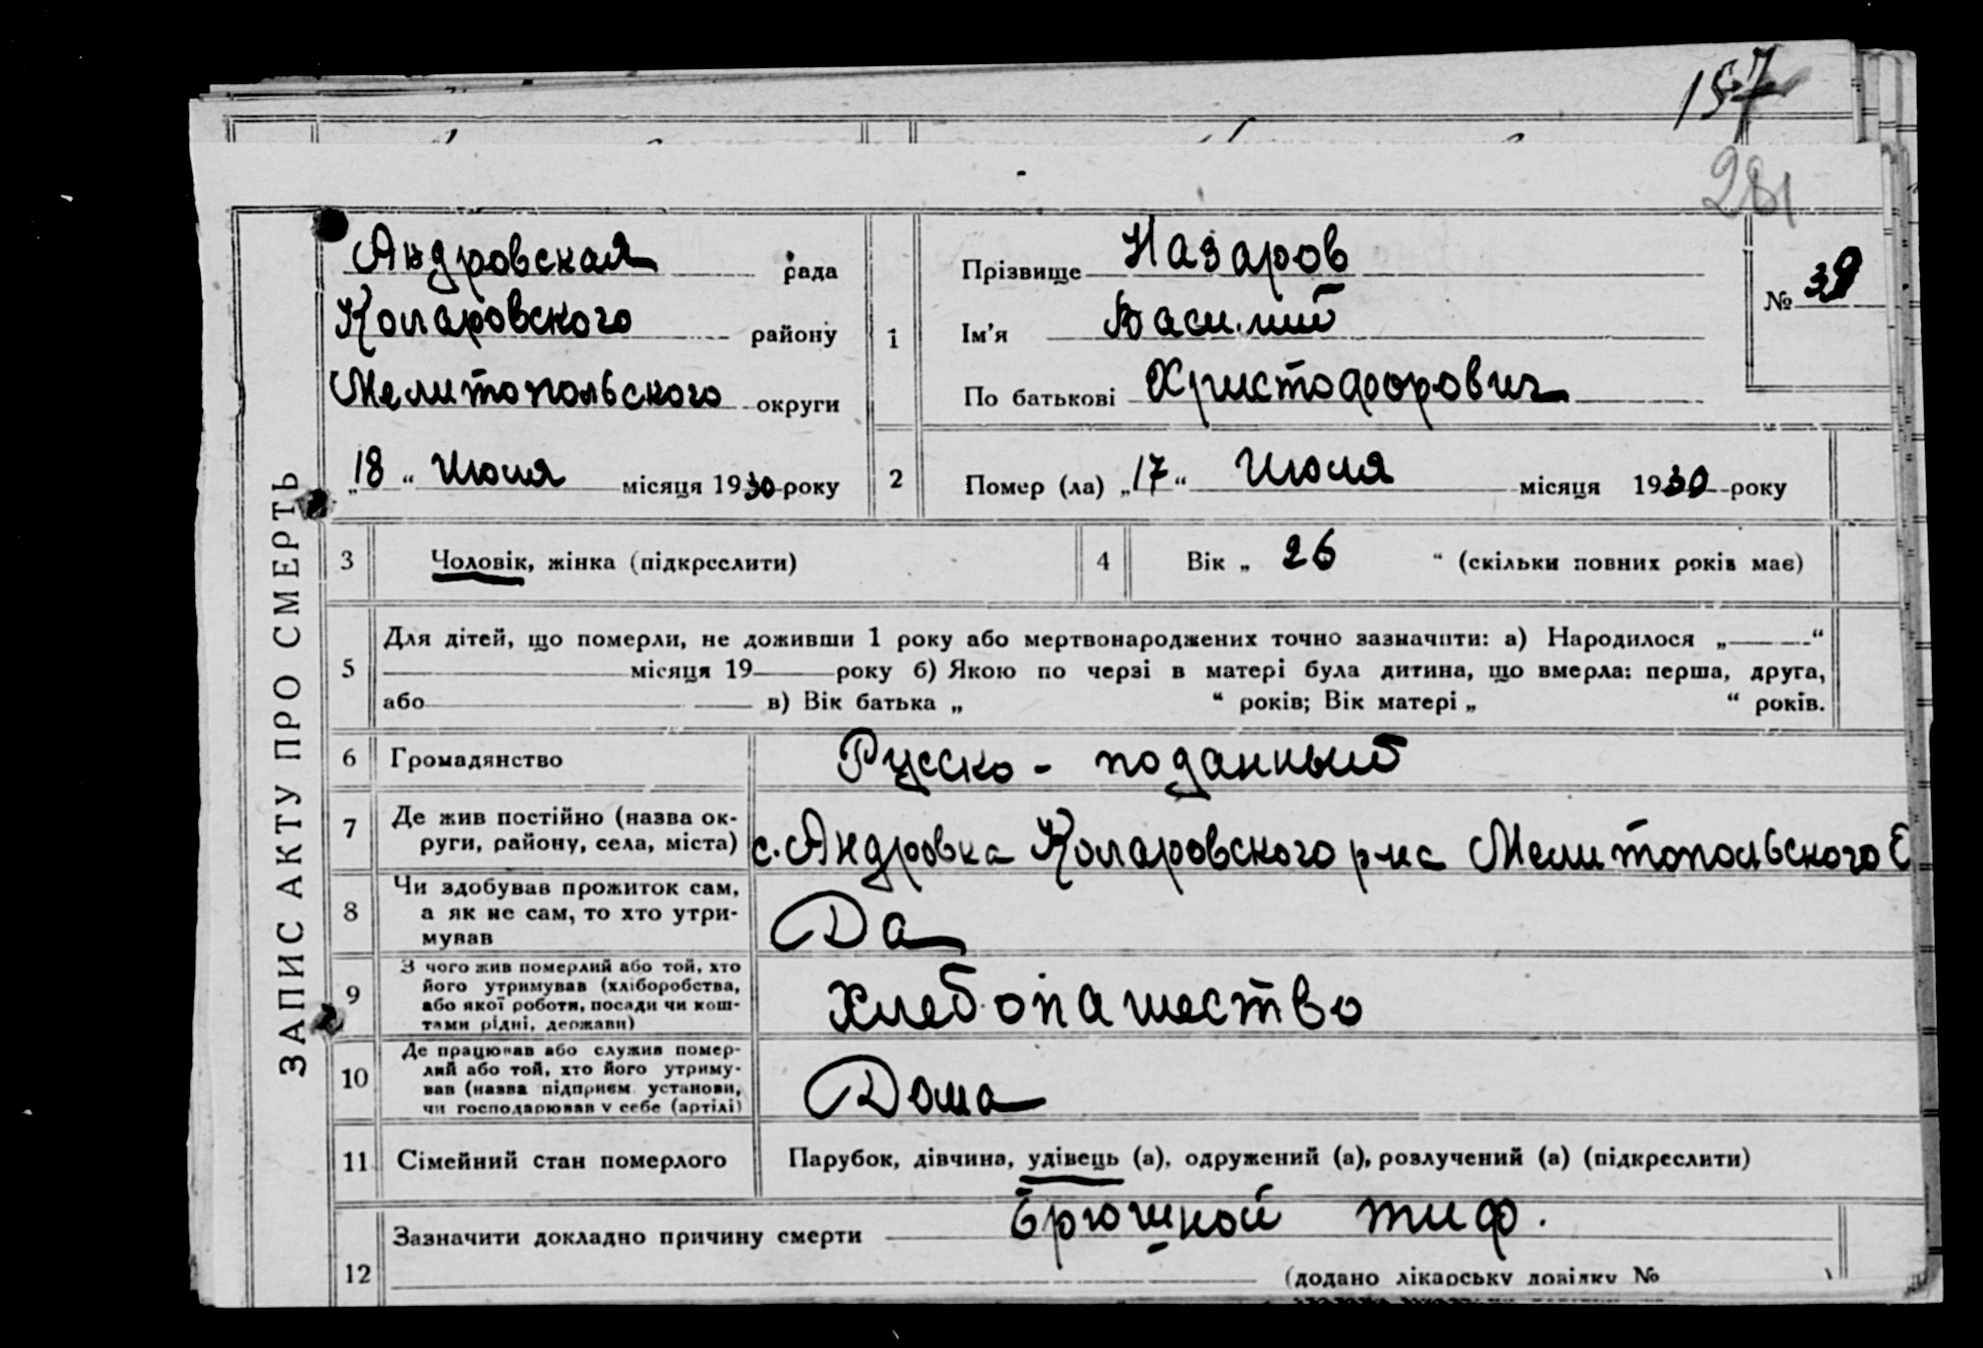 157
281
Андровская рада
Коларовского району
Мелитопольского округи
„18“ Июля місяця 1930 року
1
Прізвище Назаров
Ім'я Василий
По батькові Христофорович
№ 39
2
Помер (ла) „17“ Июля місяця 1930 року
ЗАПИС АКТУ ПРО СМЕРТЬ
3 Чоловік, жінка (підкреслити)
4 Вік „ 26 “ (скільки повних років має)
5
Для дітей, що померли, не доживши 1 року або мертвонароджених точно зазначити: а) Народилося „——“
місяця 19 року б) Якою по черзі в матері була дитина, що вмерла: перша, друга,
або в) Вік батька „ “ років; Вік матері „ “ років.
6 Громадянство Русско - поданный
7 Де жив постійно (назва ок-
руги, району, села, міста) с. Андровка Коларовского р-на Мелитопольского
8 Чи здобував прожиток сам,
а як не сам, то хто утри-
мував Да
9 З чого жив померлий або той, хто
його утримував (хліборобства,
або якої роботи, посади чи кош-
тами рідні, держави) Хлебопашество
10 Де працював або служив помер-
лий або той, хто його утриму-
вав (назва підприєм. установи,
чи господарював у себе (артілі) Дома
11 Сімейний стан померлого Парубок, дівчина, удівець (а), одружений (а), розлучений (а) (підкреслити)
12 Зазначити докладно причину смерти Брюшной тиф.
(додано лікарську довідку №